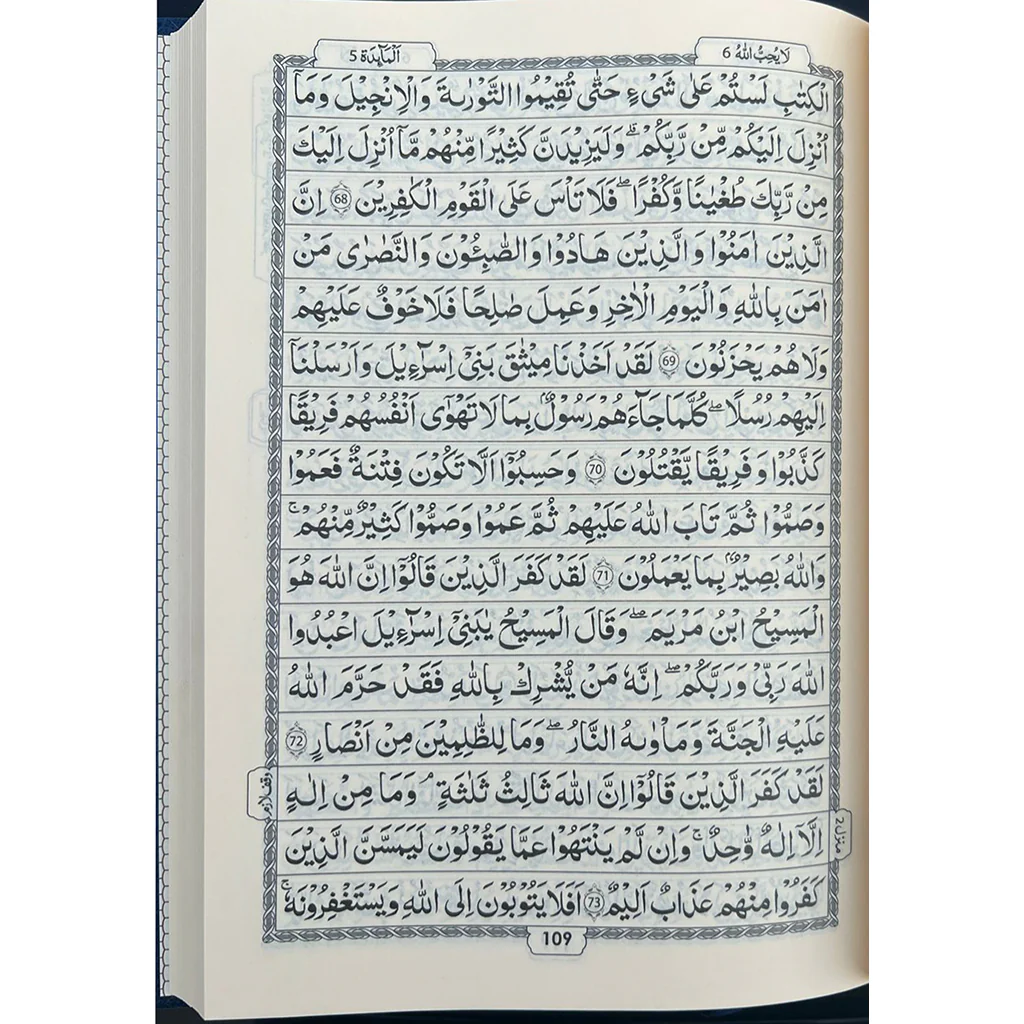 اَلْمَآئِدَة 5
لَا يُحِبُّ اللّٰهُ 6
الْكِتٰبِ لَسْتُمْ عَلٰى شَیْءٍ حَتّٰى تُقِيْمُوا التَّوْرٰىةَ وَالْاِنْجِيْلَ وَمَاۤ
اُنْزِلَ اِلَيْكُمْ مِّنْ رَّبِّكُمْ ؕ وَلَيَزِيْدَنَّ كَثِيْرًا مِّنْهُمْ مَّاۤ اُنْزِلَ اِلَيْكَ
مِنْ رَّبِّكَ طُغْيٰنًا وَّكُفْرًا ۖ فَلَا تَاْسَ عَلَى الْقَوْمِ الْكٰفِرِيْنَ 68 اِنَّ
الَّذِيْنَ اٰمَنُوْا وَالَّذِيْنَ هَادُوْا وَالصّٰبِـُٔوْنَ وَالنَّصٰرٰى مَنْ
اٰمَنَ بِاللّٰهِ وَالْيَوْمِ الْاٰخِرِ وَعَمِلَ صٰلِحًا فَلَا خَوْفٌ عَلَيْهِمْ
وَلَا هُمْ يَحْزَنُوْنَ 69 لَقَدْ اَخَذْنَا مِيْثٰقَ بَنِیْۤ اِسْرَآءِيْلَ وَاَرْسَلْنَاۤ
اِلَيْهِمْ رُسُلًا ۖ كُلَّمَا جَآءَهُمْ رَسُوْلٌۢ بِمَا لَا تَهْوٰۤى اَنْفُسُهُمْ فَرِيْقًا
كَذَّبُوْا وَفَرِيْقًا يَّقْتُلُوْنَ 70 وَحَسِبُوْۤا اَلَّا تَكُوْنَ فِتْنَةٌ فَعَمُوْا
وَصَمُّوْا ثُمَّ تَابَ اللّٰهُ عَلَيْهِمْ ثُمَّ عَمُوْا وَصَمُّوْا كَثِيْرٌ مِّنْهُمْ ۚ
وَاللّٰهُ بَصِيْرٌۢ بِمَا يَعْمَلُوْنَ 71 لَقَدْ كَفَرَ الَّذِيْنَ قَالُوْۤا اِنَّ اللّٰهَ هُوَ
الْمَسِيْحُ ابْنُ مَرْيَمَ ۖ وَقَالَ الْمَسِيْحُ يٰبَنِیْۤ اِسْرَآءِيْلَ اعْبُدُوا
اللّٰهَ رَبِّیْ وَرَبَّكُمْ ۖ اِنَّهٗ مَنْ يُّشْرِكْ بِاللّٰهِ فَقَدْ حَرَّمَ اللّٰهُ
عَلَيْهِ الْجَنَّةَ وَمَاْوٰىهُ النَّارُ ۖ وَمَا لِلظّٰلِمِيْنَ مِنْ اَنْصَارٍ 72
لَقَدْ كَفَرَ الَّذِيْنَ قَالُوْۤا اِنَّ اللّٰهَ ثَالِثُ ثَلٰثَةٍ ۘ وَمَا مِنْ اِلٰهٍ
اِلَّاۤ اِلٰهٌ وَّاحِدٌ ۚ وَاِنْ لَّمْ يَنْتَهُوْا عَمَّا يَقُوْلُوْنَ لَيَمَسَّنَّ الَّذِيْنَ
كَفَرُوْا مِنْهُمْ عَذَابٌ اَلِيْمٌ 73 اَفَلَا يَتُوْبُوْنَ اِلَى اللّٰهِ وَيَسْتَغْفِرُوْنَهٗ ۚ
وقف لازم
منزل 2
109